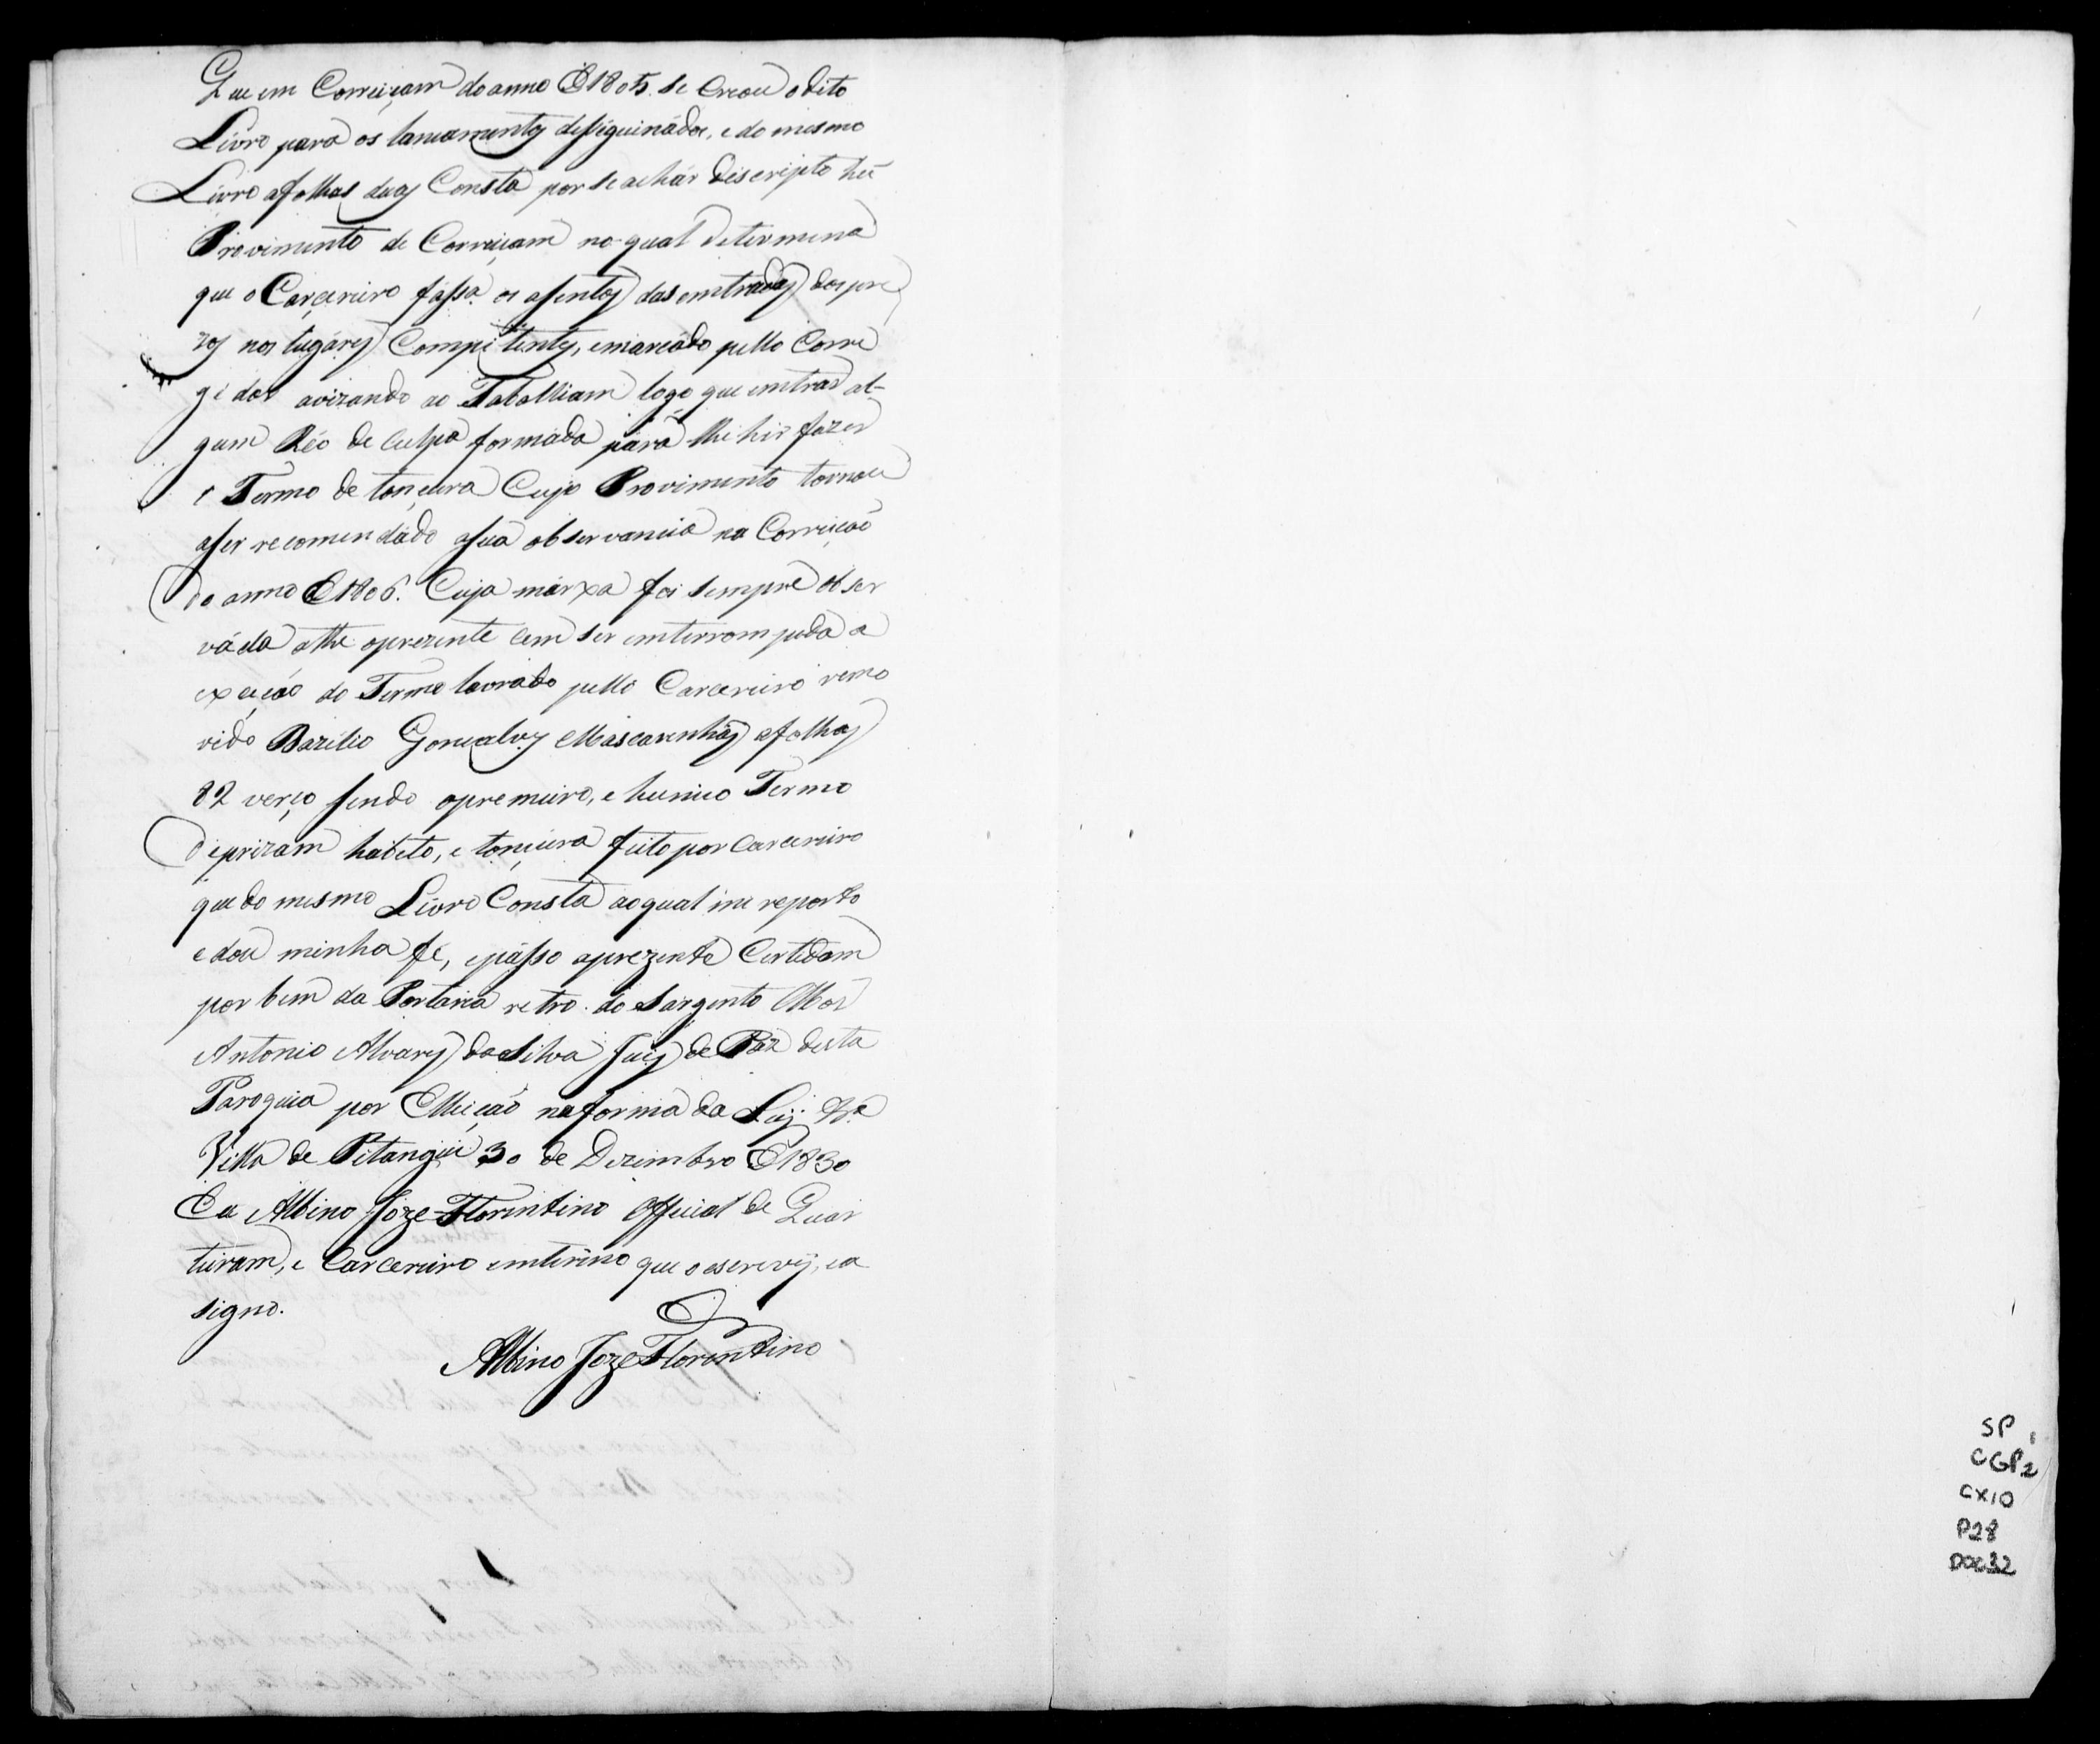 Que em Correiçam do anno d 1805. se Creou o dito
Livro para os lancamentos desseguinados, e do mesmo
Livro afolhas duas Consta por se achár discripto hũ
Provimento de Correiçam no qual determina
que o Carçereiro fássa os asentos das emtradas dos pre
zos nos lugáres Compitentes, emarcádo pello Corre
gidor avizando ao Taballiam logo que emtrar al-
gum Réo de Culpa formáda pára lhe hir fazer
o Termo de tonçura Cujo Provimento tornou
aser recomendádo asua observancia na Correicaõ
do anno d 1806. Cuja márxa foi sempre obser
váda athe oprezente cem ser emterrompida a
exceicáo do Termo lavrádo pello Carcereiro remo
vido Bazilio Goncalves Máscarenhas afolhas
82 verço sendo opremeiro, e hunico Termo
deprizam habito, e tonçura feito por Carcereiro
que do mesmo Livro Consta ao qual me reporto
e dou minha fé, epásso aprezente Certidam
por bem da Portaria retro. do Sargento Mor
Antonio Alvares da Silva Juis de Páz desta
Paroquia por Elleição na forma da Ley.
Villa de Pitangui 30 de Dezimbro d 1830
Eu Albino Joze Florintino Official de Quar
teiram, e Carcereiro emterino que o escrevy, e a
signo.
Albino Joze Florintino
SP
CGP2
CX10
P28
DOC32